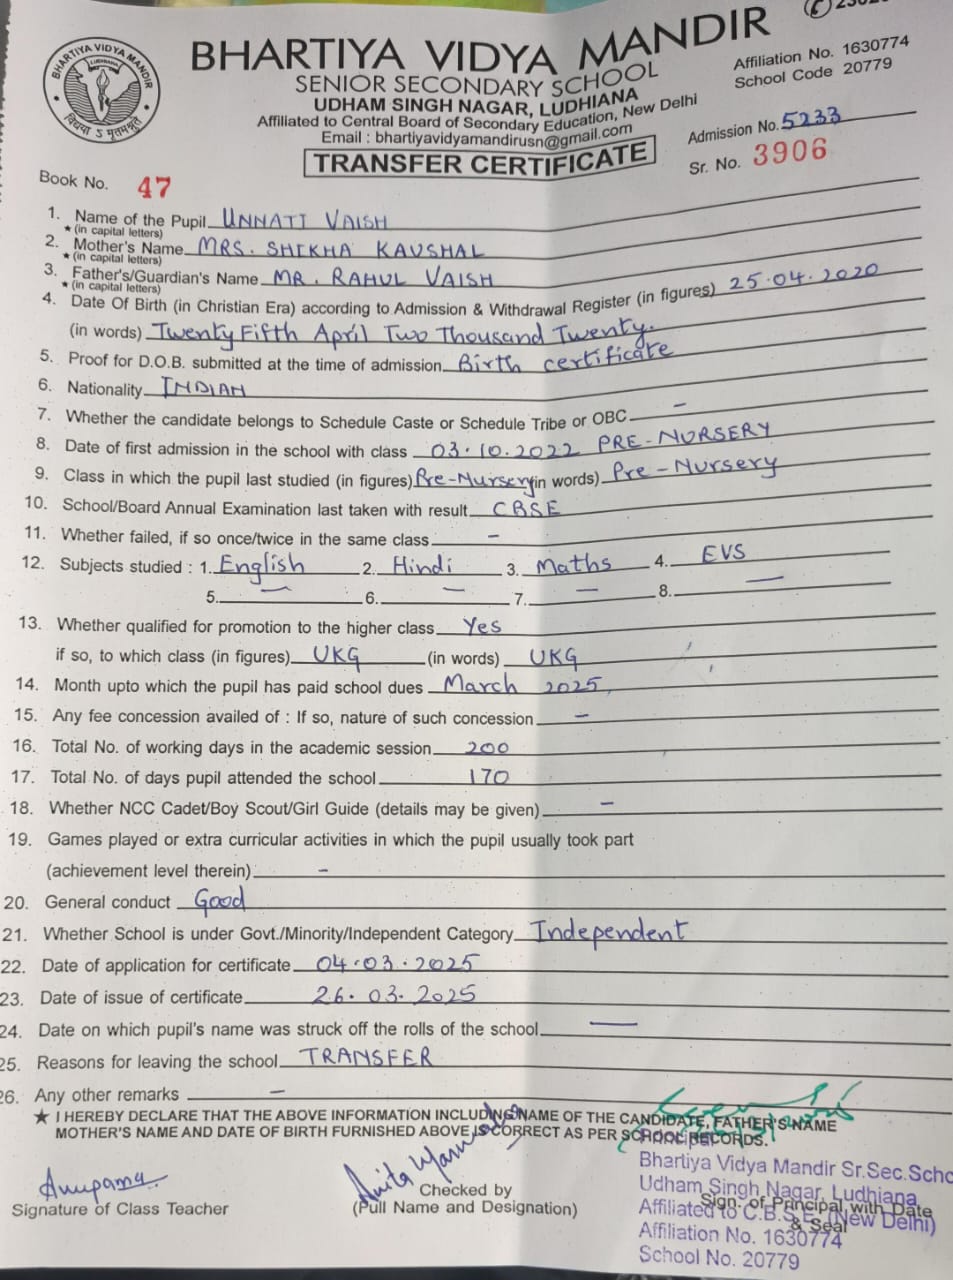 BHARTIYA VIDYA MANDIR
LUDHIANA
विद्यया ऽ मृतमश्नुते
BHARTIYA VIDYA MANDIR
SENIOR SECONDARY SCHOOL
UDHAM SINGH NAGAR, LUDHIANA
Affiliated to Central Board of Secondary Education, New Delhi
Email : bhartiyavidyamandirusn@gmail.com
TRANSFER CERTIFICATE
Affiliation No. 1630774
School Code 20779
Admission No. 5233
Sr. No. 3906
Book No. 47
1. Name of the Pupil UNNATI VAISH
* (in capital letters)
2. Mother's Name MRS. SHIKHA KAUSHAL
* (in capital letters)
3. Father's/Guardian's Name MR. RAHUL VAISH
* (in capital letters)
4. Date Of Birth (in Christian Era) according to Admission & Withdrawal Register (in figures) 25.04.2020
(in words) Twenty Fifth April Two Thousand Twenty.
5. Proof for D.O.B. submitted at the time of admission Birth certificate
6. Nationality INDIAN
7. Whether the candidate belongs to Schedule Caste or Schedule Tribe or OBC -
8. Date of first admission in the school with class 03.10.2022 PRE-NURSERY
9. Class in which the pupil last studied (in figures) Pre-Nursery in words) Pre-Nursery
10. School/Board Annual Examination last taken with result CBSE
11. Whether failed, if so once/twice in the same class -
12. Subjects studied : 1. English 2. Hindi 3. Maths 4. EVS
5. - 6. - 7. - 8. -
13. Whether qualified for promotion to the higher class Yes
if so, to which class (in figures) UKG (in words) UKG
14. Month upto which the pupil has paid school dues March 2025,
15. Any fee concession availed of : If so, nature of such concession -
16. Total No. of working days in the academic session 200
17. Total No. of days pupil attended the school 170
18. Whether NCC Cadet/Boy Scout/Girl Guide (details may be given) -
19. Games played or extra curricular activities in which the pupil usually took part
(achievement level therein) -
20. General conduct Good
21. Whether School is under Govt./Minority/Independent Category Independent
22. Date of application for certificate 04.03.2025
23. Date of issue of certificate 26.03.2025
24. Date on which pupil's name was struck off the rolls of the school -
25. Reasons for leaving the school TRANSFER
26. Any other remarks -
★ I HEREBY DECLARE THAT THE ABOVE INFORMATION INCLUDING NAME OF THE CANDIDATE, FATHER'S NAME
MOTHER'S NAME AND DATE OF BIRTH FURNISHED ABOVE IS CORRECT AS PER SCHOOL RECORDS.
Anupama
Signature of Class Teacher
Anita
Checked by
(Full Name and Designation)
Sign. of Principal with Date
& Seal
Principal
Bhartiya Vidya Mandir Sr.Sec.Scho
Udham Singh Nagar, Ludhiana
Affiliated to C.B.S.E. (New Delhi)
Affiliation No. 1630774
School No. 20779